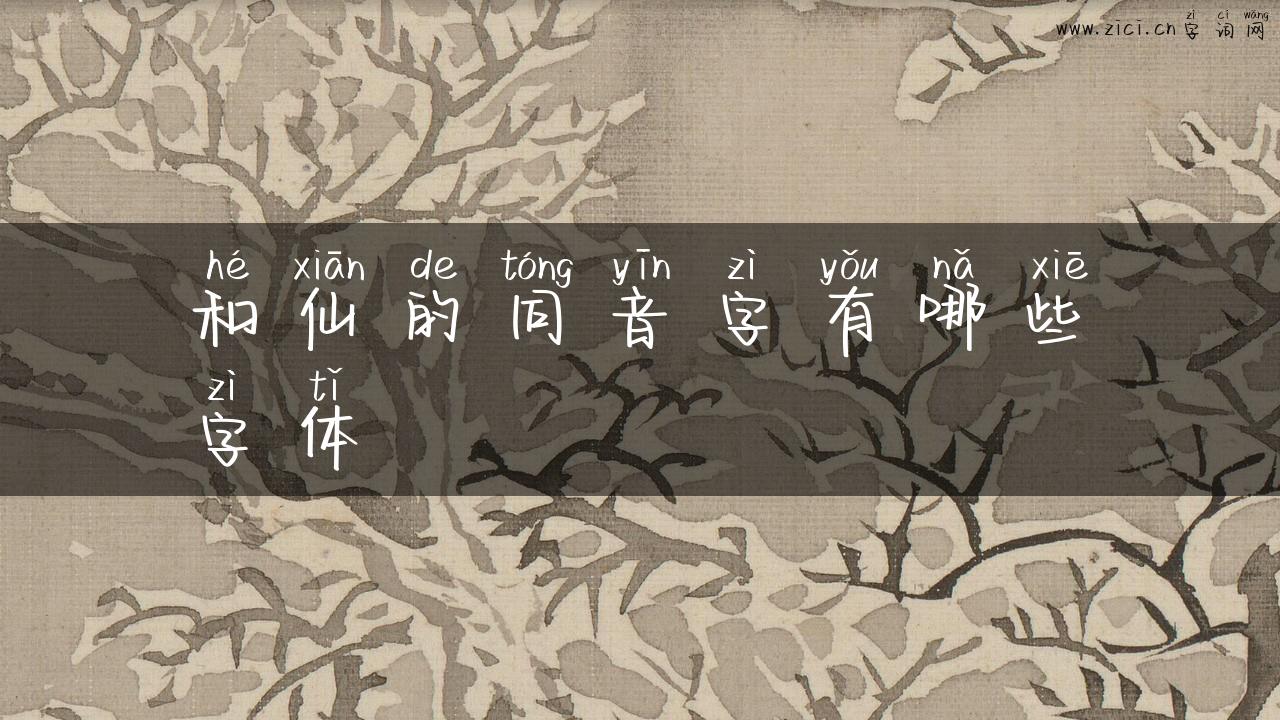 zì cí wǎng
www.zici.cn字词网
hé xiān de tóng yīn zì yǒu nǎ xiē
和仙的同音字有哪些
zì tǐ
字体